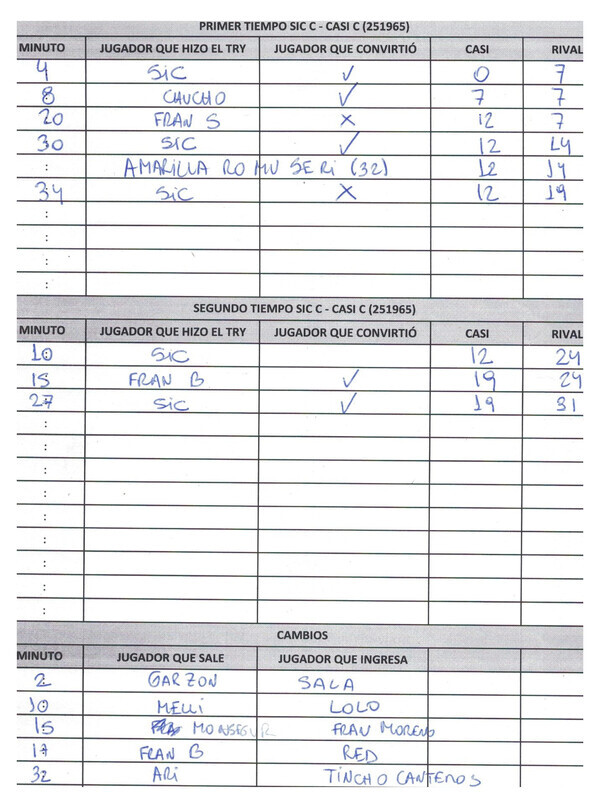 PRIMER TIEMPO SIC C - CASI C (251965)
MINUTO JUGADOR QUE HIZO EL TRY JUGADOR QUE CONVIRTIÓ CASI RIVAL
4 SIC ✓ 0 7
8 CHUCHO ✓ 7 7
20 FRAN S X 12 7
30 SIC ✓ 12 14
: AMARILLA RO MU SERI (32) 12 14
34 SIC X 12 19
:
:
:
:
SEGUNDO TIEMPO SIC C - CASI C (251965)
MINUTO JUGADOR QUE HIZO EL TRY JUGADOR QUE CONVIRTIÓ CASI RIVAL
10 SIC 12 24
15 FRAN B ✓ 19 24
27 SIC ✓ 19 31
:
:
:
:
:
:
:
:
:
CAMBIOS
MINUTO JUGADOR QUE SALE JUGADOR QUE INGRESA
2 GARZON SALA
10 MELLI LOLO
15 MONSEGUR FRAN MORENO
17 FRAN B RED
32 ARI TINCHO CANTEROS